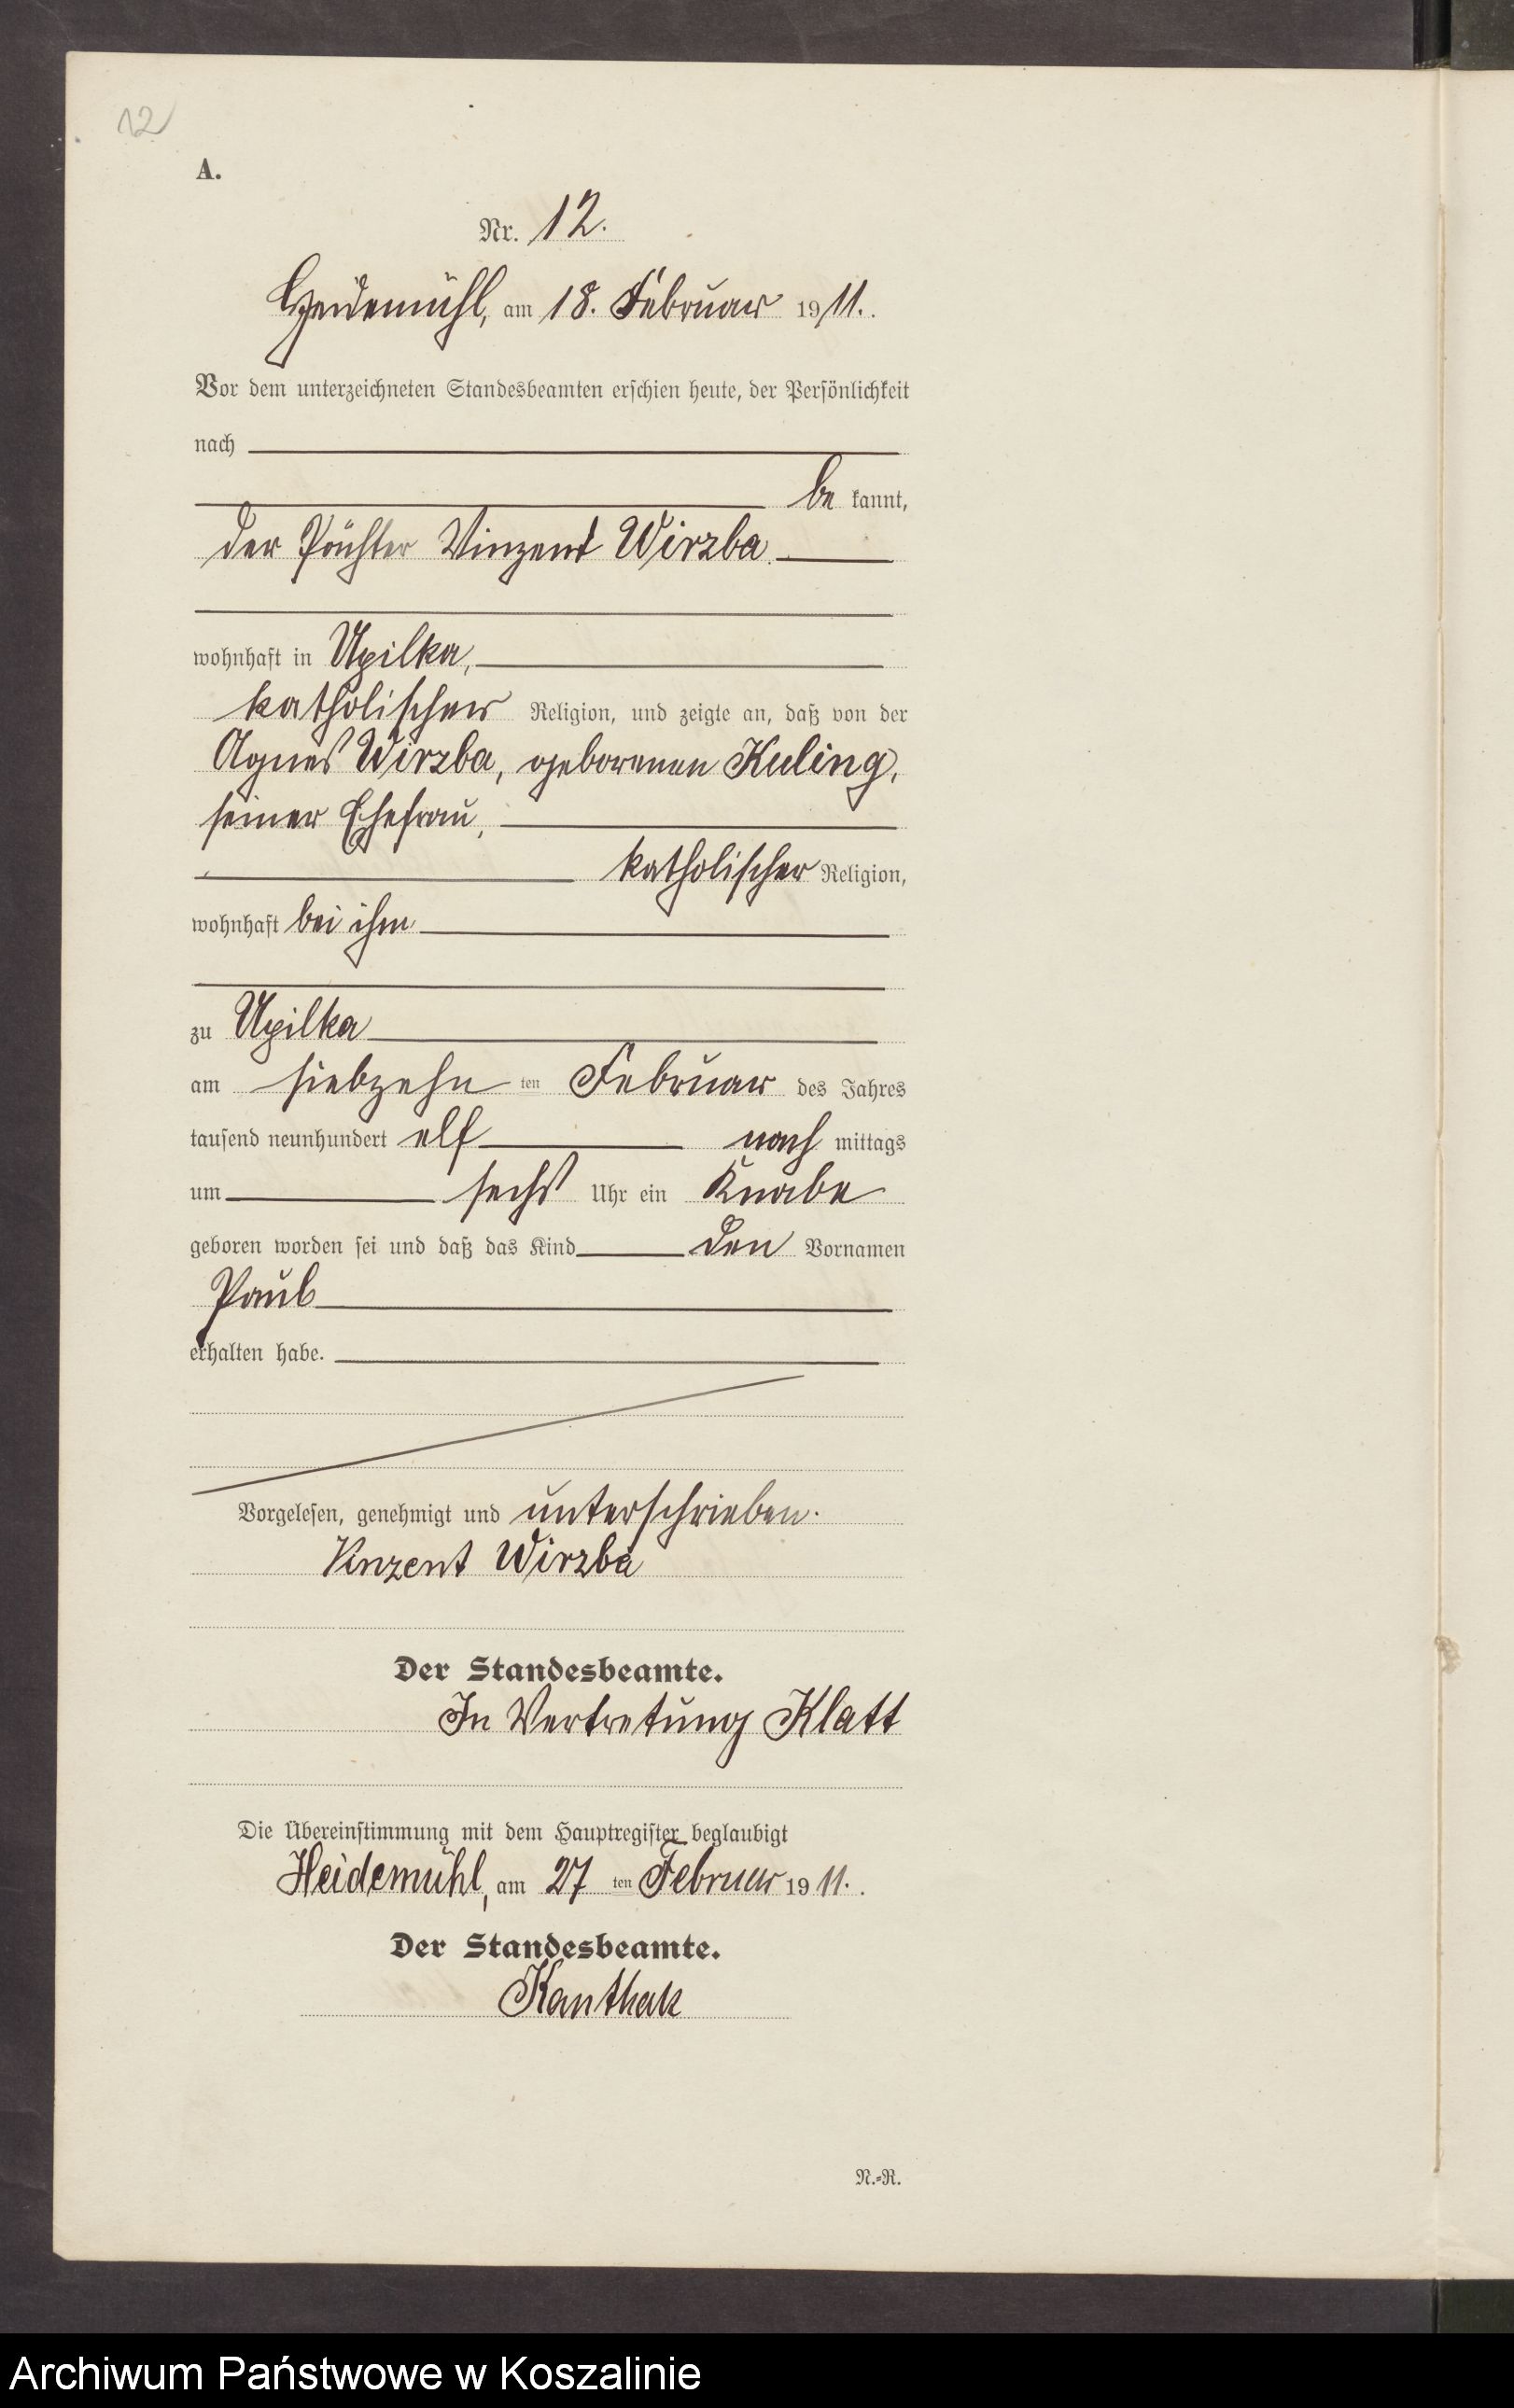 12
A.
Nr. 12.
Heidemühl, am 18. Februar 1911.
Vor dem unterzeichneten Standesbeamten erschien heute, der Persönlichkeit
nach
be kannt,
der Pächter Vinzent Wirzba
wohnhaft in Upilka,
katholischer Religion, und zeigte an, daß von der
Agnes Wirzba, geborenen Kuling,
seiner Ehefrau,
katholischer Religion,
wohnhaft bei ihm
zu Upilka
am siebzehn ten Februar des Jahres
tausend neunhundert elf nach mittags
um sechs Uhr ein Knabe
geboren worden sei und daß das Kind den Vornamen
Paul
erhalten habe.
Vorgelesen, genehmigt und unterschrieben.
Vinzent Wirzba
Der Standesbeamte.
In Vertretung Klatt
Die Übereinstimmung mit dem Hauptregister beglaubigt
Heidemühl, am 27 ten Februar 1911.
Der Standesbeamte.
Kanthak
N.=R.
Archiwum Państwowe w Koszalinie